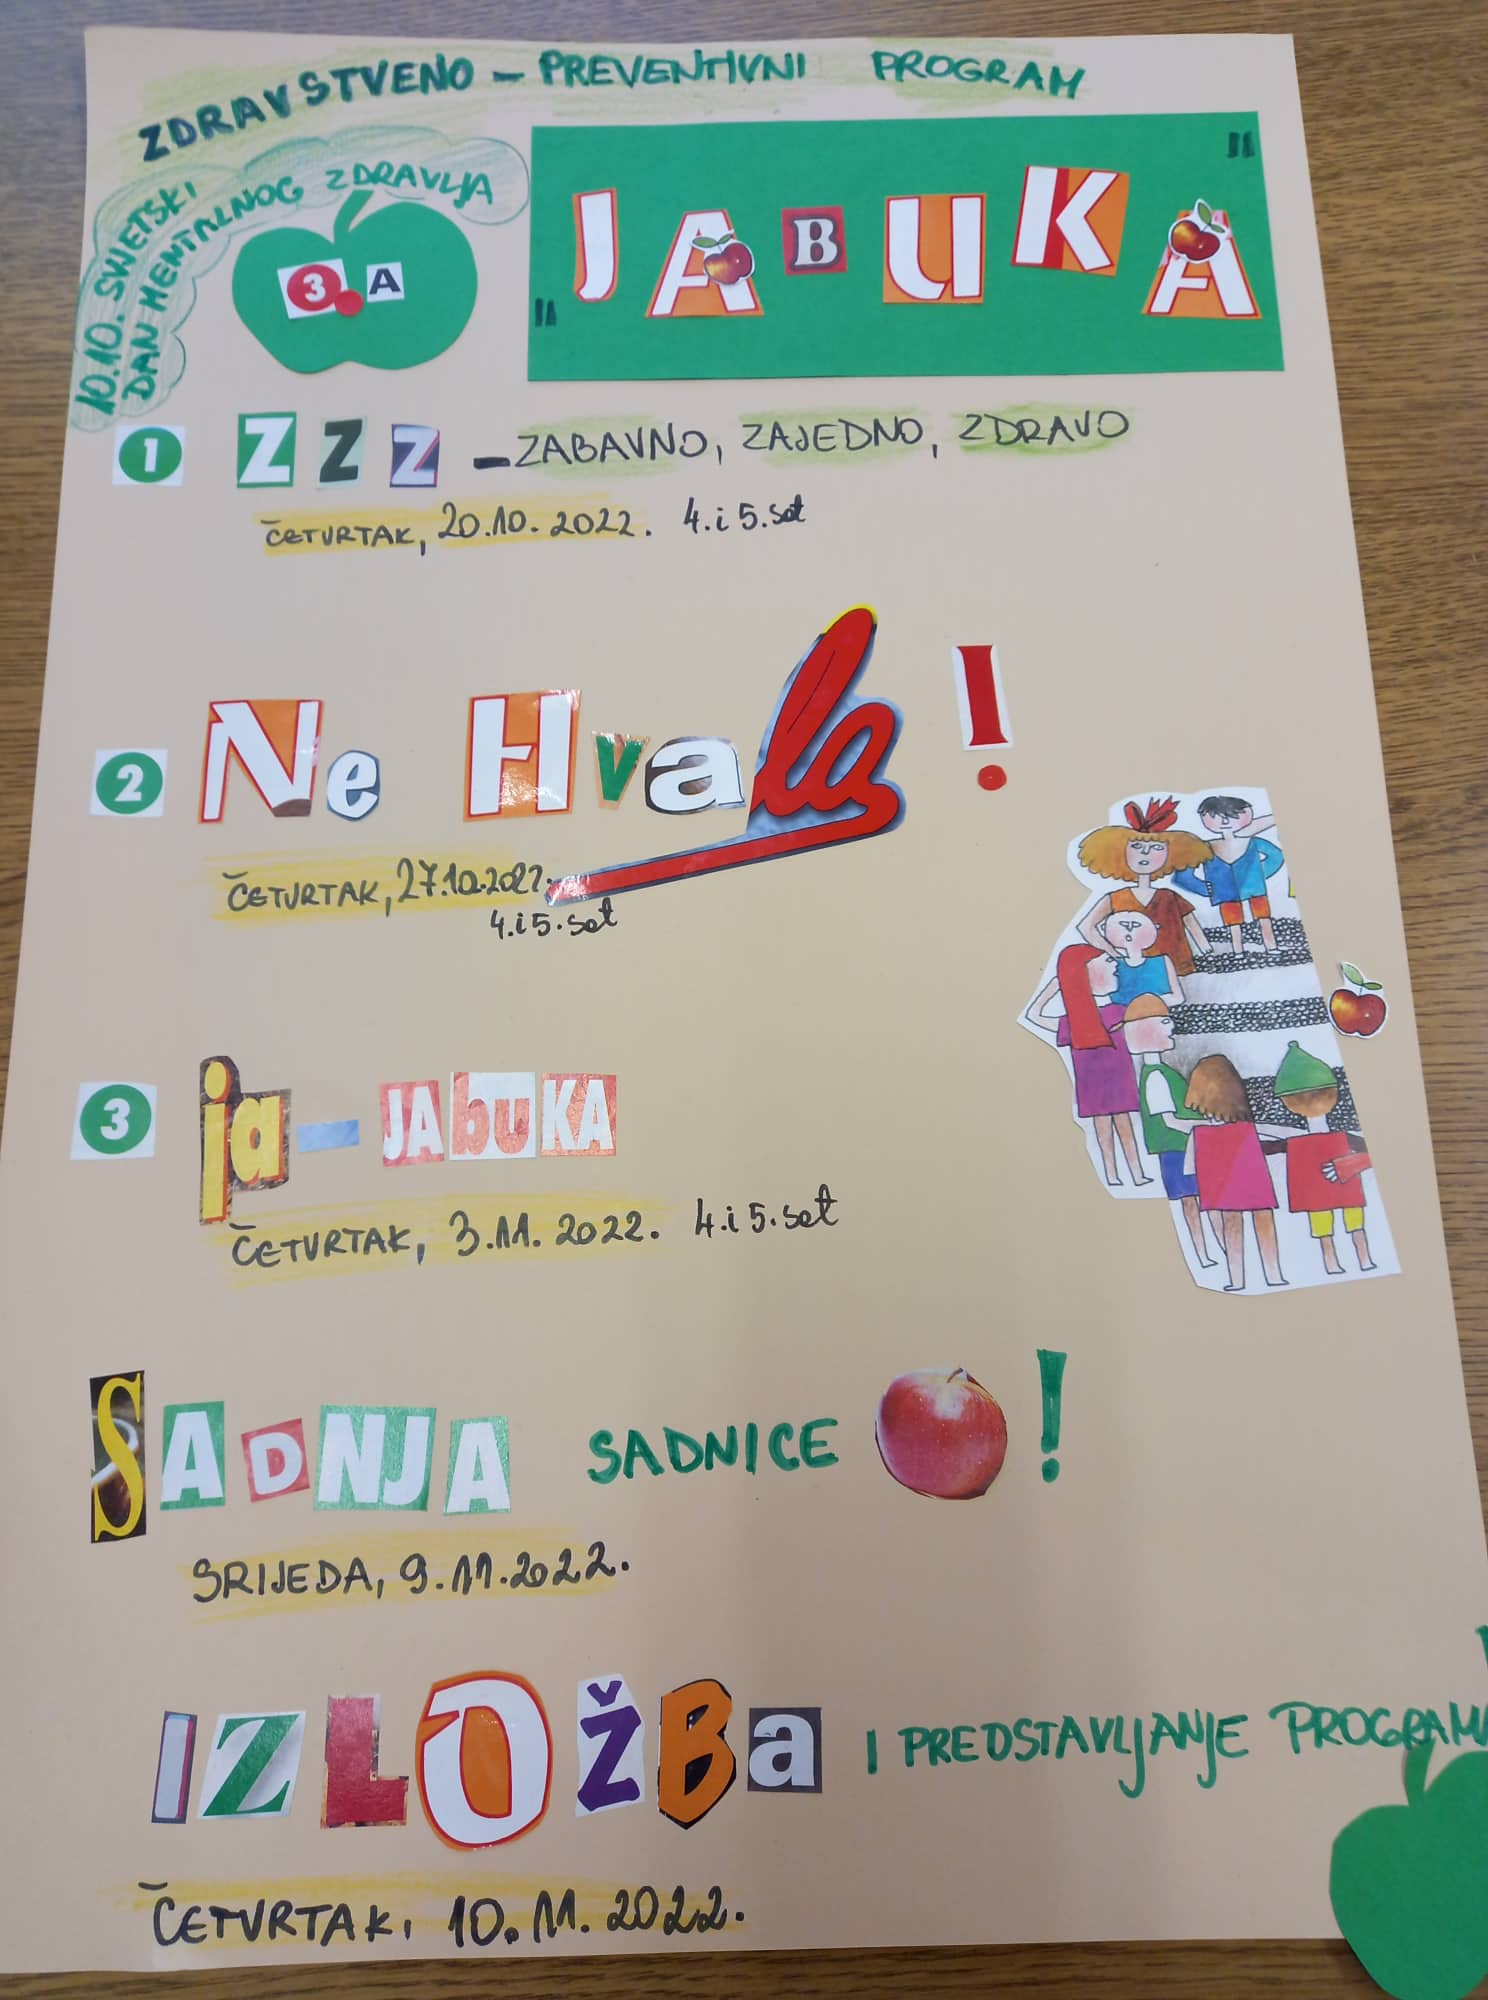 ZDRAVSTVENO - PREVENTIVNI PROGRAM
10.10. SVJETSKI
DAN MENTALNOG ZDRAVLJA
3. A
"JABUKA"
1 ZZZ - ZABAVNO, ZAJEDNO, ZDRAVO
ČETVRTAK, 20.10.2022. 4. i 5. sat
2 Ne Hvala!
ČETVRTAK, 27.10.2022.
4. i 5. sat
3 ja - JAbuKA
ČETVRTAK, 3.11.2022. 4. i 5. sat
SADNJA SADNICE !
SRIJEDA, 9.11.2022.
IZLOŽBa I PREDSTAVLJANJE PROGRAMA
ČETVRTAK, 10.11.2022.